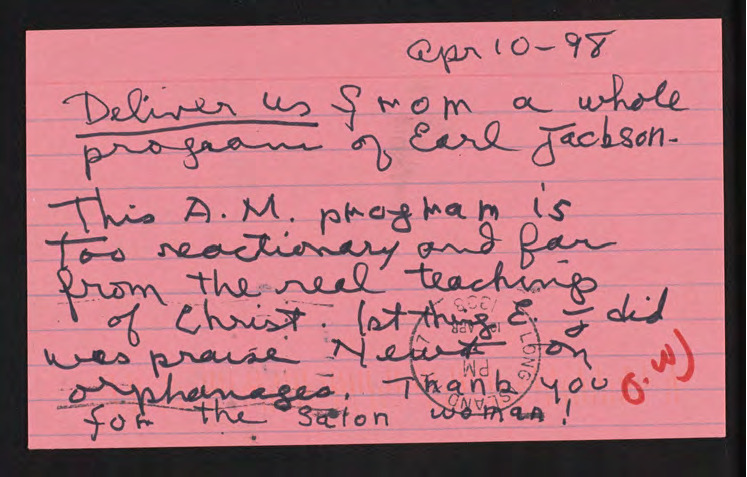 Apr 10-98
Deliver us from a whole
program of Earl Jackson-
This A.M. program is
too reactionary and far
from the real teachings
of Christ. 1st thing E. J did
was praise Newt on
orphanages. Thank you
for the Salon woman!
LONG ISLAND
PM
APR